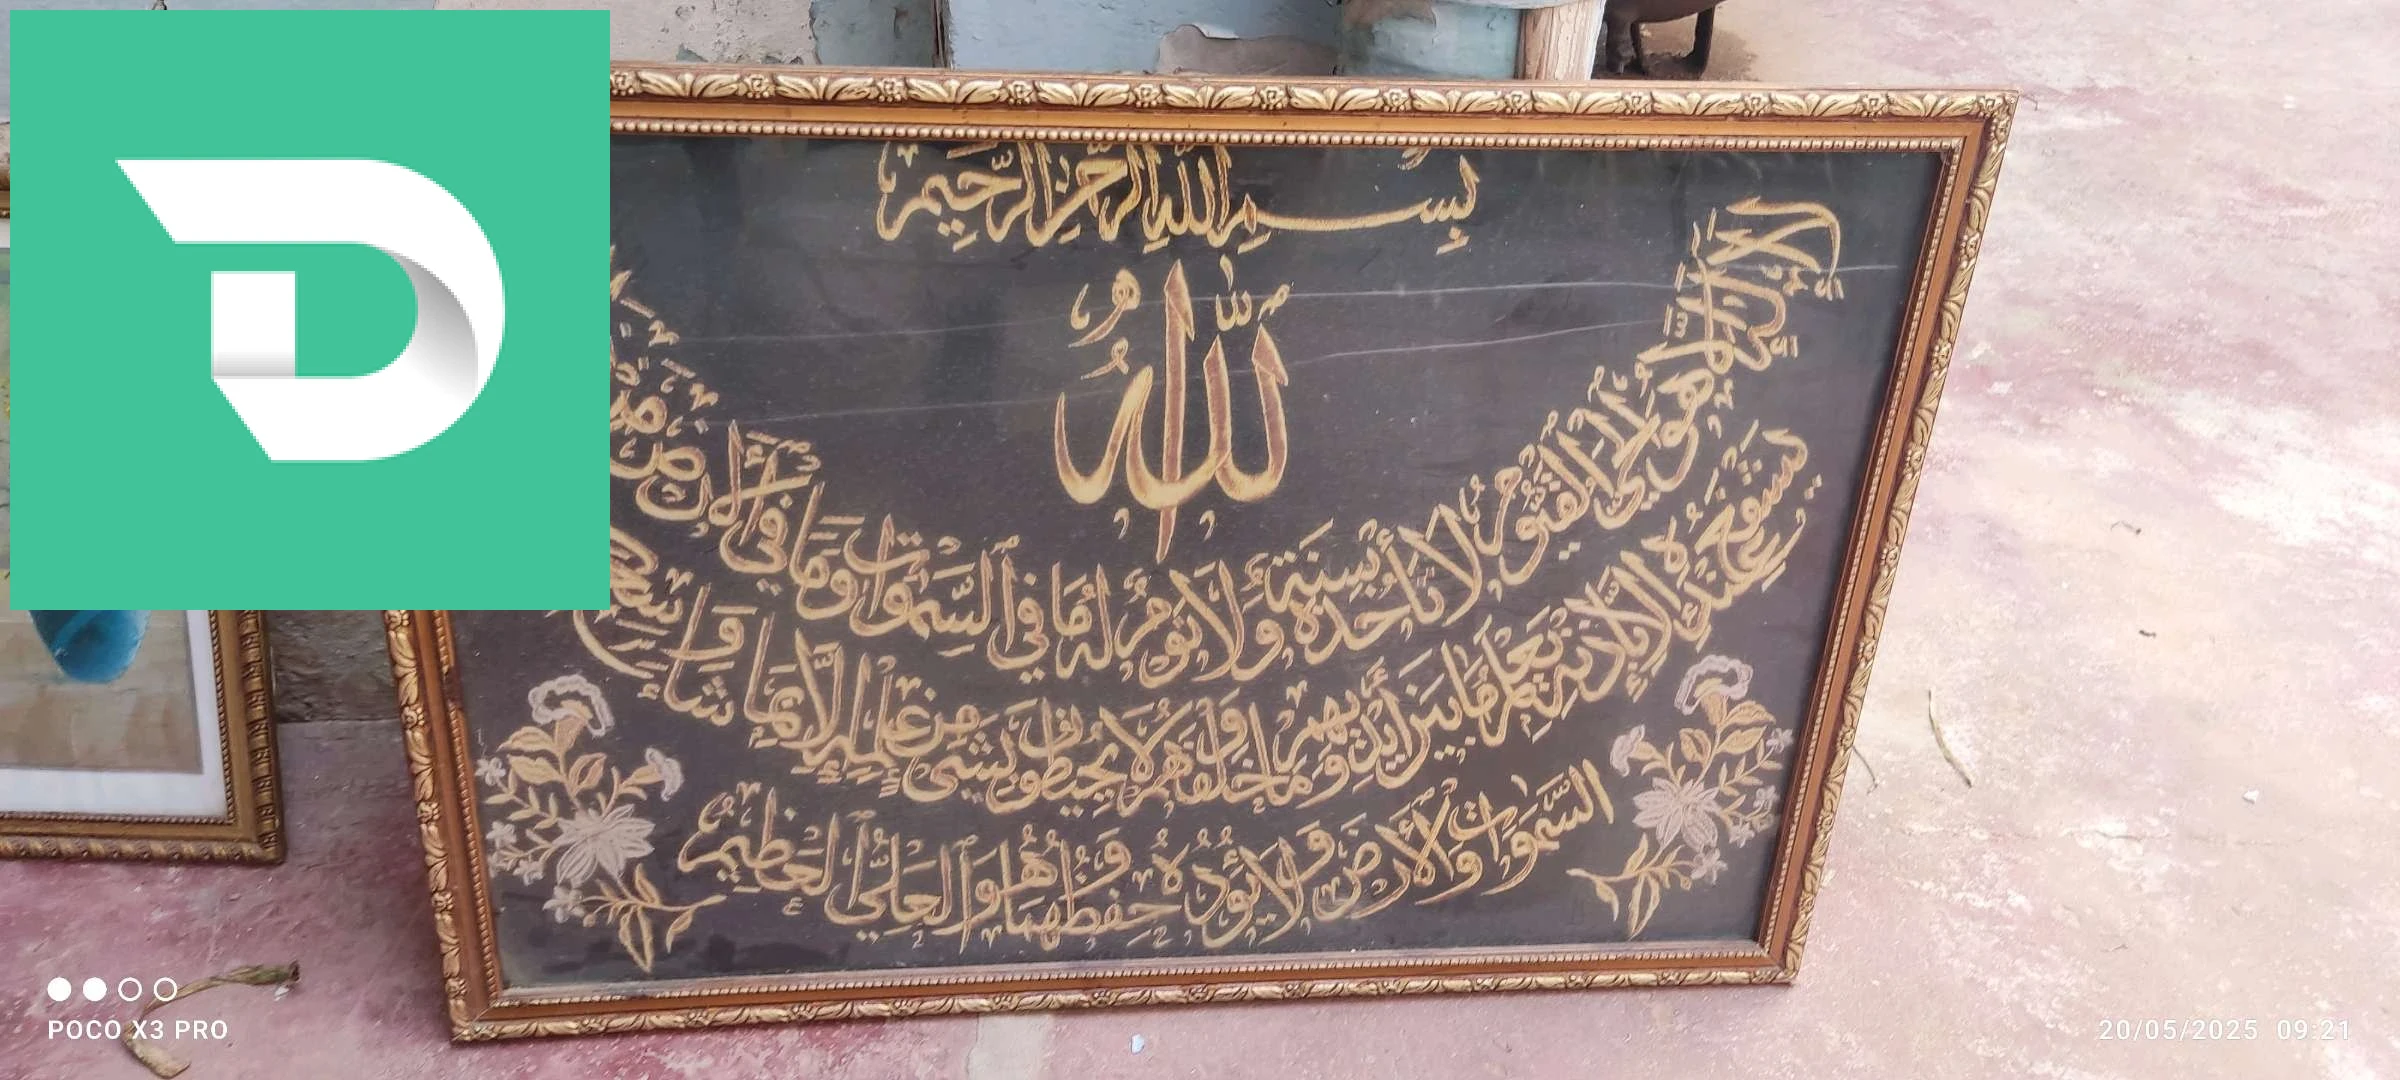 بِسْمِ اللهِ الرَّحْمٰنِ الرَّحِيْمِ
الله
لَا إِلٰهَ إِلَّا هُوَ الْحَيُّ الْقَيُّوْمُ لَا تَأْخُذُهُ سِنَةٌ وَلَا نَوْمٌ لَهُ مَا فِي السَّمٰوَاتِ وَمَا فِي الْأَرْضِ
يَشْفَعُ عِنْدَهُ إِلَّا بِإِذْنِهِ يَعْلَمُ مَا بَيْنَ أَيْدِيْهِمْ وَمَا خَلْفَهُمْ وَلَا يُحِيْطُوْنَ بِشَيْءٍ مِنْ عِلْمِهِ إِلَّا بِمَا شَاءَ وَسِعَ
السَّمٰوَاتِ وَالْأَرْضَ وَلَا يَؤُدُهُ حِفْظُهُمَا وَهُوَ الْعَلِيُّ الْعَظِيْمُ
POCO X3 PRO
20/05/2025 09:21